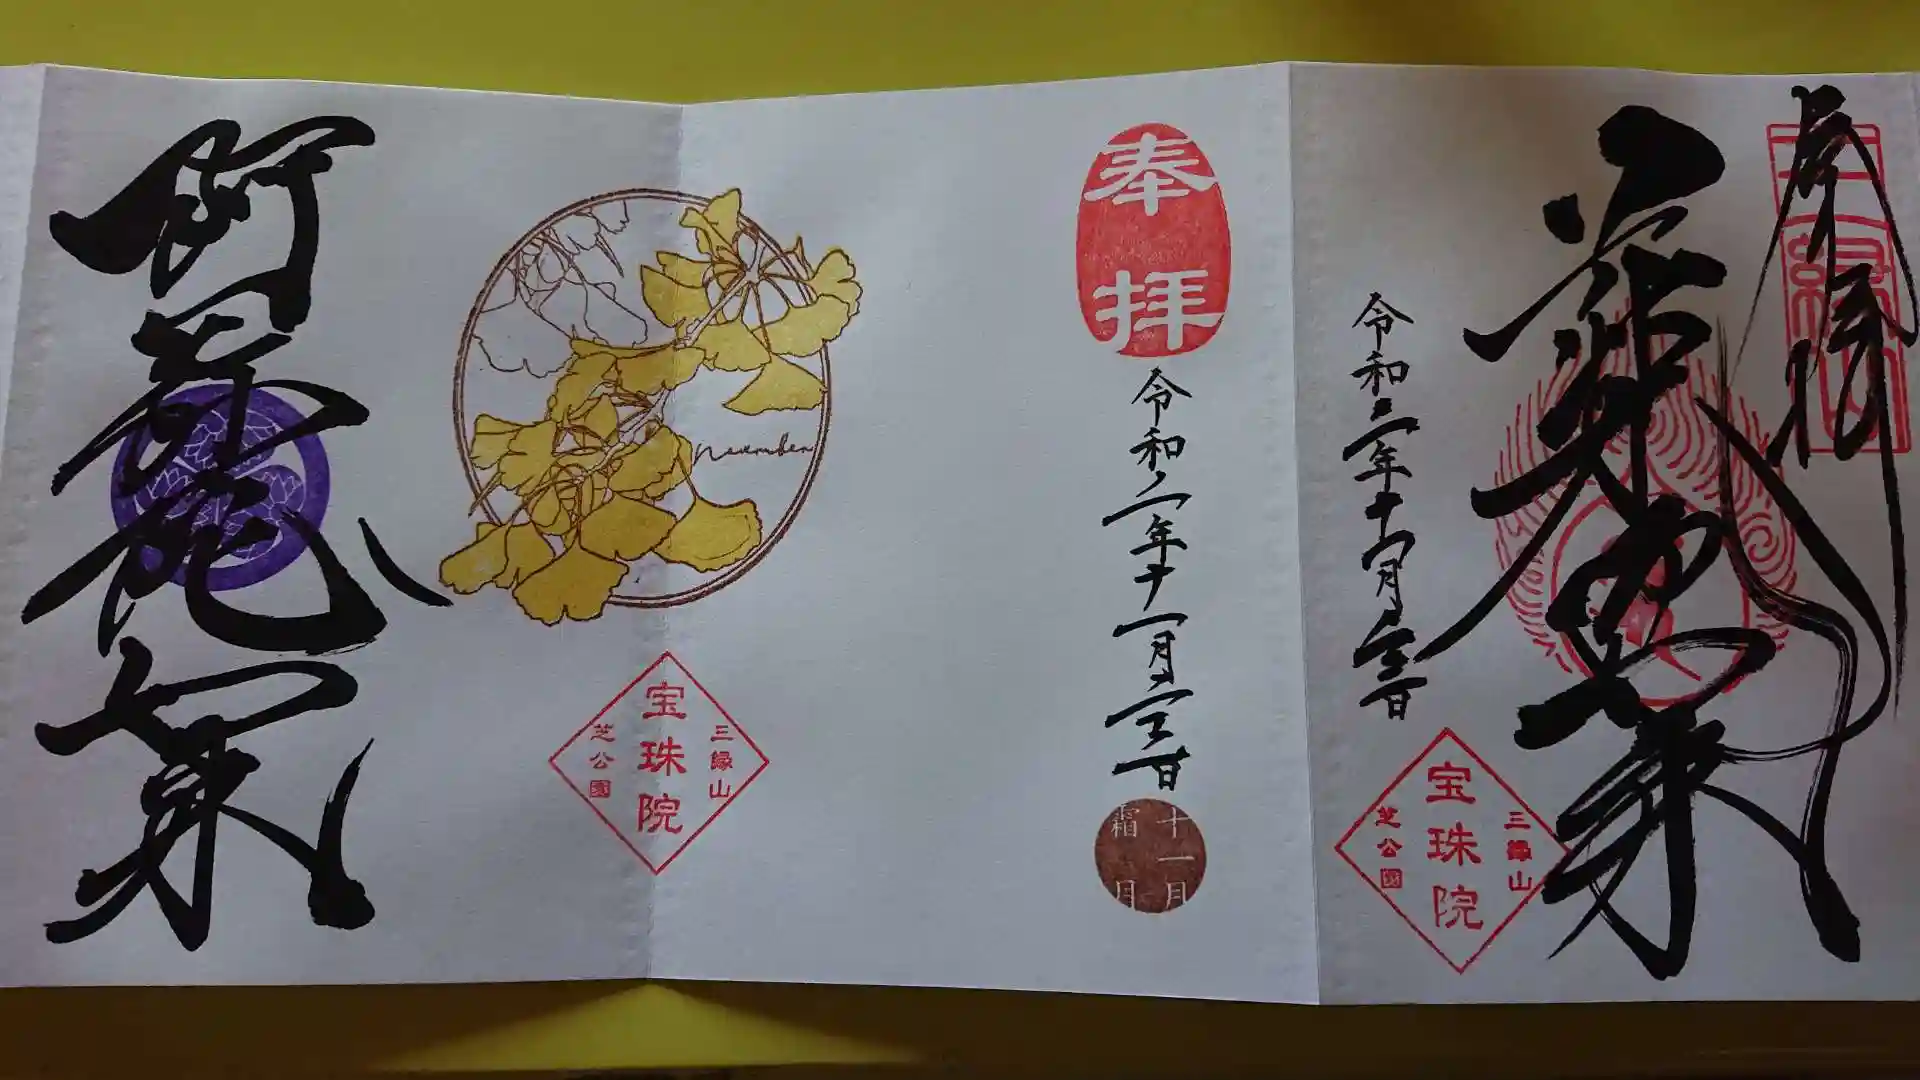 奉拝
三縁山
令和三年十一月
三縁山
宝珠院
芝公園
奉拝
令和三年十一月
十一月
霜月
november
三縁山
宝珠院
芝公園
阿弥陀如来